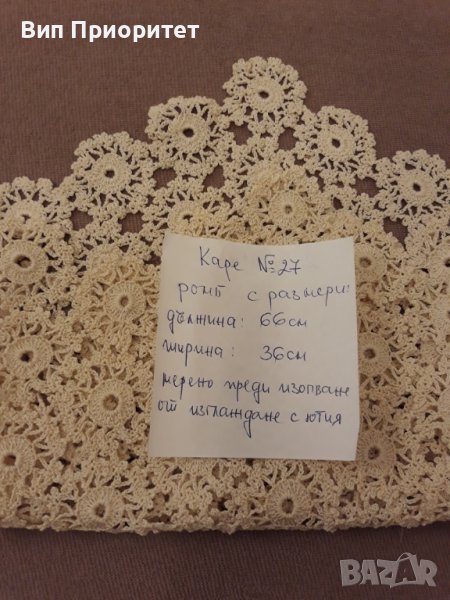 Вип Приоритет
Каре №27
ромб с размери:
дължина: 66см
ширина: 36см
мерено преди изопване
от изглаждане с ютия
BAZAR